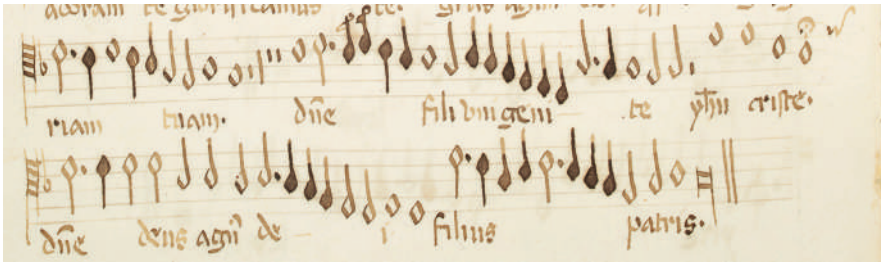 adoram te glorificamus te.
riam tuam. dn̄e fili unigeni te yħu criste.
dn̄e deus agn̄ de i filius patris.